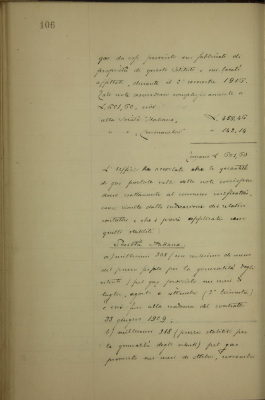 106
gas da essi prodotto nei fabbricati di
proprietà di questo Istituto, nei locali
affittati, durante il 2° semestre 1915.
Tali note ascendono complessivamente a
£. 591,50, cioè:
alla Società Italiana, £.
" " Consumatori " 142,14
£ 591,50
L'Uffizio ha accertato che le quantità
di gas portate nelle note corrispon-
dono esattamente al consumo verificatosi,
come risulta dalle indicazioni dei relativi
contatori, e che i prezzi applicati sono
quelli stabiliti:
Società Italiana:
a) millesimi 208 in meno
del prezzo per la generalità degli
utenti) pel gas prodotto nei mesi di
luglio, agosto e settembre (3° trimestre)
e ciò in relazione del contratto
23 giugno 1909.
b) millesimi 218 (prezzo stabilito per
la generalità degli utenti) pel gas
prodotto nei mesi di ottobre, novembre